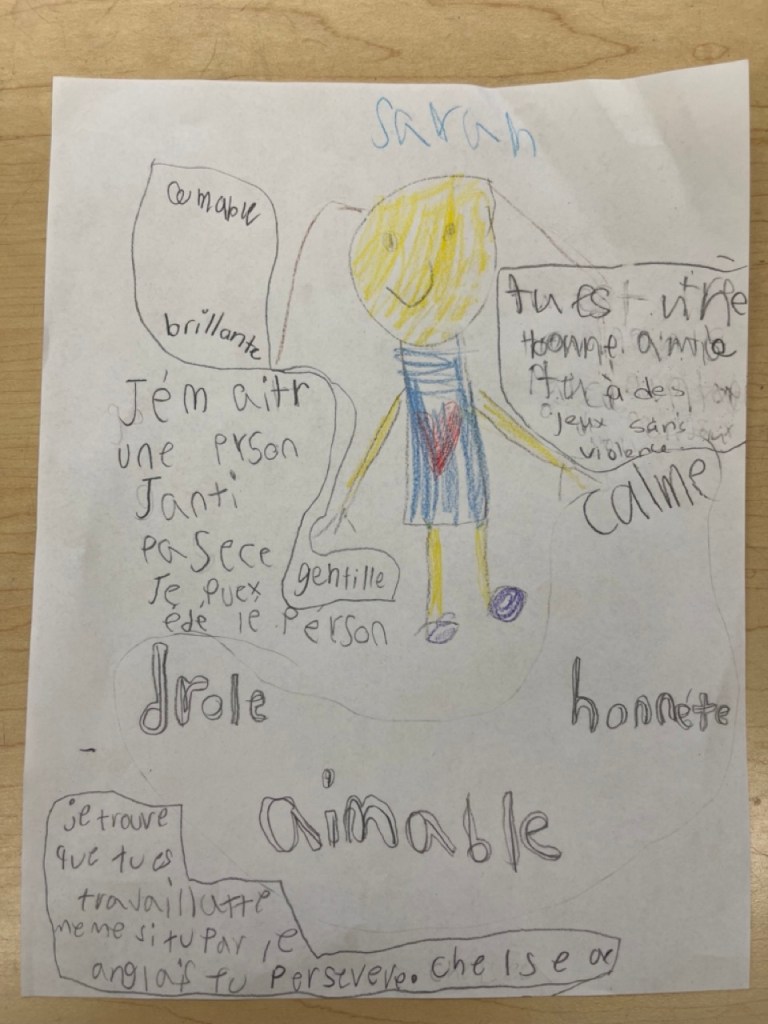 Sarah
aimable
brillante
Jém aitr
une prson
Janti
paSece
Je puex
édé le Pérson
gentille
tu es
bonne amie
tu à des
jeux sans
violence
calme
drole
honnéte
aimable
je trouve
que tu es
travaillatte
meme si tu par le
anglais tu persevere. chelsea